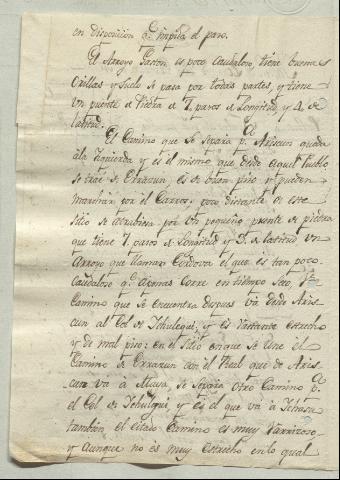 en disposicion q.e impida el paso.
El Arroyo Gaston es poco Caudaloso, tiene buenas
Orillas y Suelo se pasa por todas partes, y tiene
un puente de Piedra de 7. pasos de Longitud y 4. de
latitud.
El Camino que se Separa p.a Ariscun queda
ala Izquierda y es el mismo que desde aquel Pueblo
se trae de Errazun, es de buen piso y pueden
marchar por el Carros; poco distante de este
Sitio se atrabiesa por un pequeño puente de piedra
que tiene 7. pasos de Longitud y 3. de latitud un
Arroyo que llaman Cordova el que es tan poco
Caudaloso q.e apenas corre en tiempo seco, Este
Camino que se encuentra despues va desde Aris
cun al Col de Ychulegui, y es bastante estrecho
y de mal piso: en el Sitio en que se une el
Camino de Errazun con el Real que de Aris
cun va à Maya, se Separa otro Camino p.a
el Col de Ychulgui y es el que va à
tambien el citado Camino es muy Varrizoso,
y Aunque no es muy estrecho en lo qual